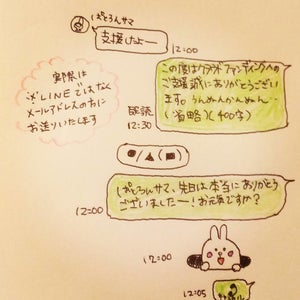 ぱとろんサマ
支援したよー
12:00
この度はクラウドファンディングへの
ご支援誠にありがとうござい
ます。うんぬんかんぬん…
（省略）（400字）
既読
12:30
実際は
※LINEではなく
メールアドレスの方に
お送りいたします
ぱとろんサマ、先日は本当にありがとう
ございましたー！お元気ですか？
12:00
12:00
12:05